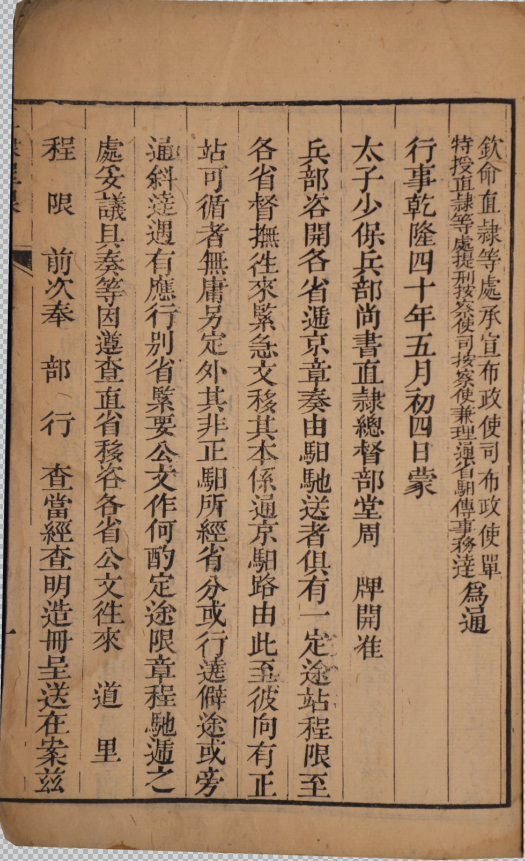 欽命直隸等處承宣布政使司布政使單
特授直隸等處提刑按察使司按察使兼理通省馹傳事務達
為通
行事乾隆四十年五月初四日蒙
太子少保兵部尚書直隸總督部堂周 牌開准
兵部咨開各省遞京章奏由馹馳送者俱有一定途站程限至
各省督撫徃來緊急文移其本係通京馹路由此至彼向有正
站可循者無庸另定外其非正馹所經省分或行遶僻途或旁
通斜達遇有應行別省緊要公文作何酌定途限章程馳遞之
處妥議具奏等因遵查直省移咨各省公文徃來 道 里
程 限 前次奉 部 行 查當經查明造冊呈送在案兹